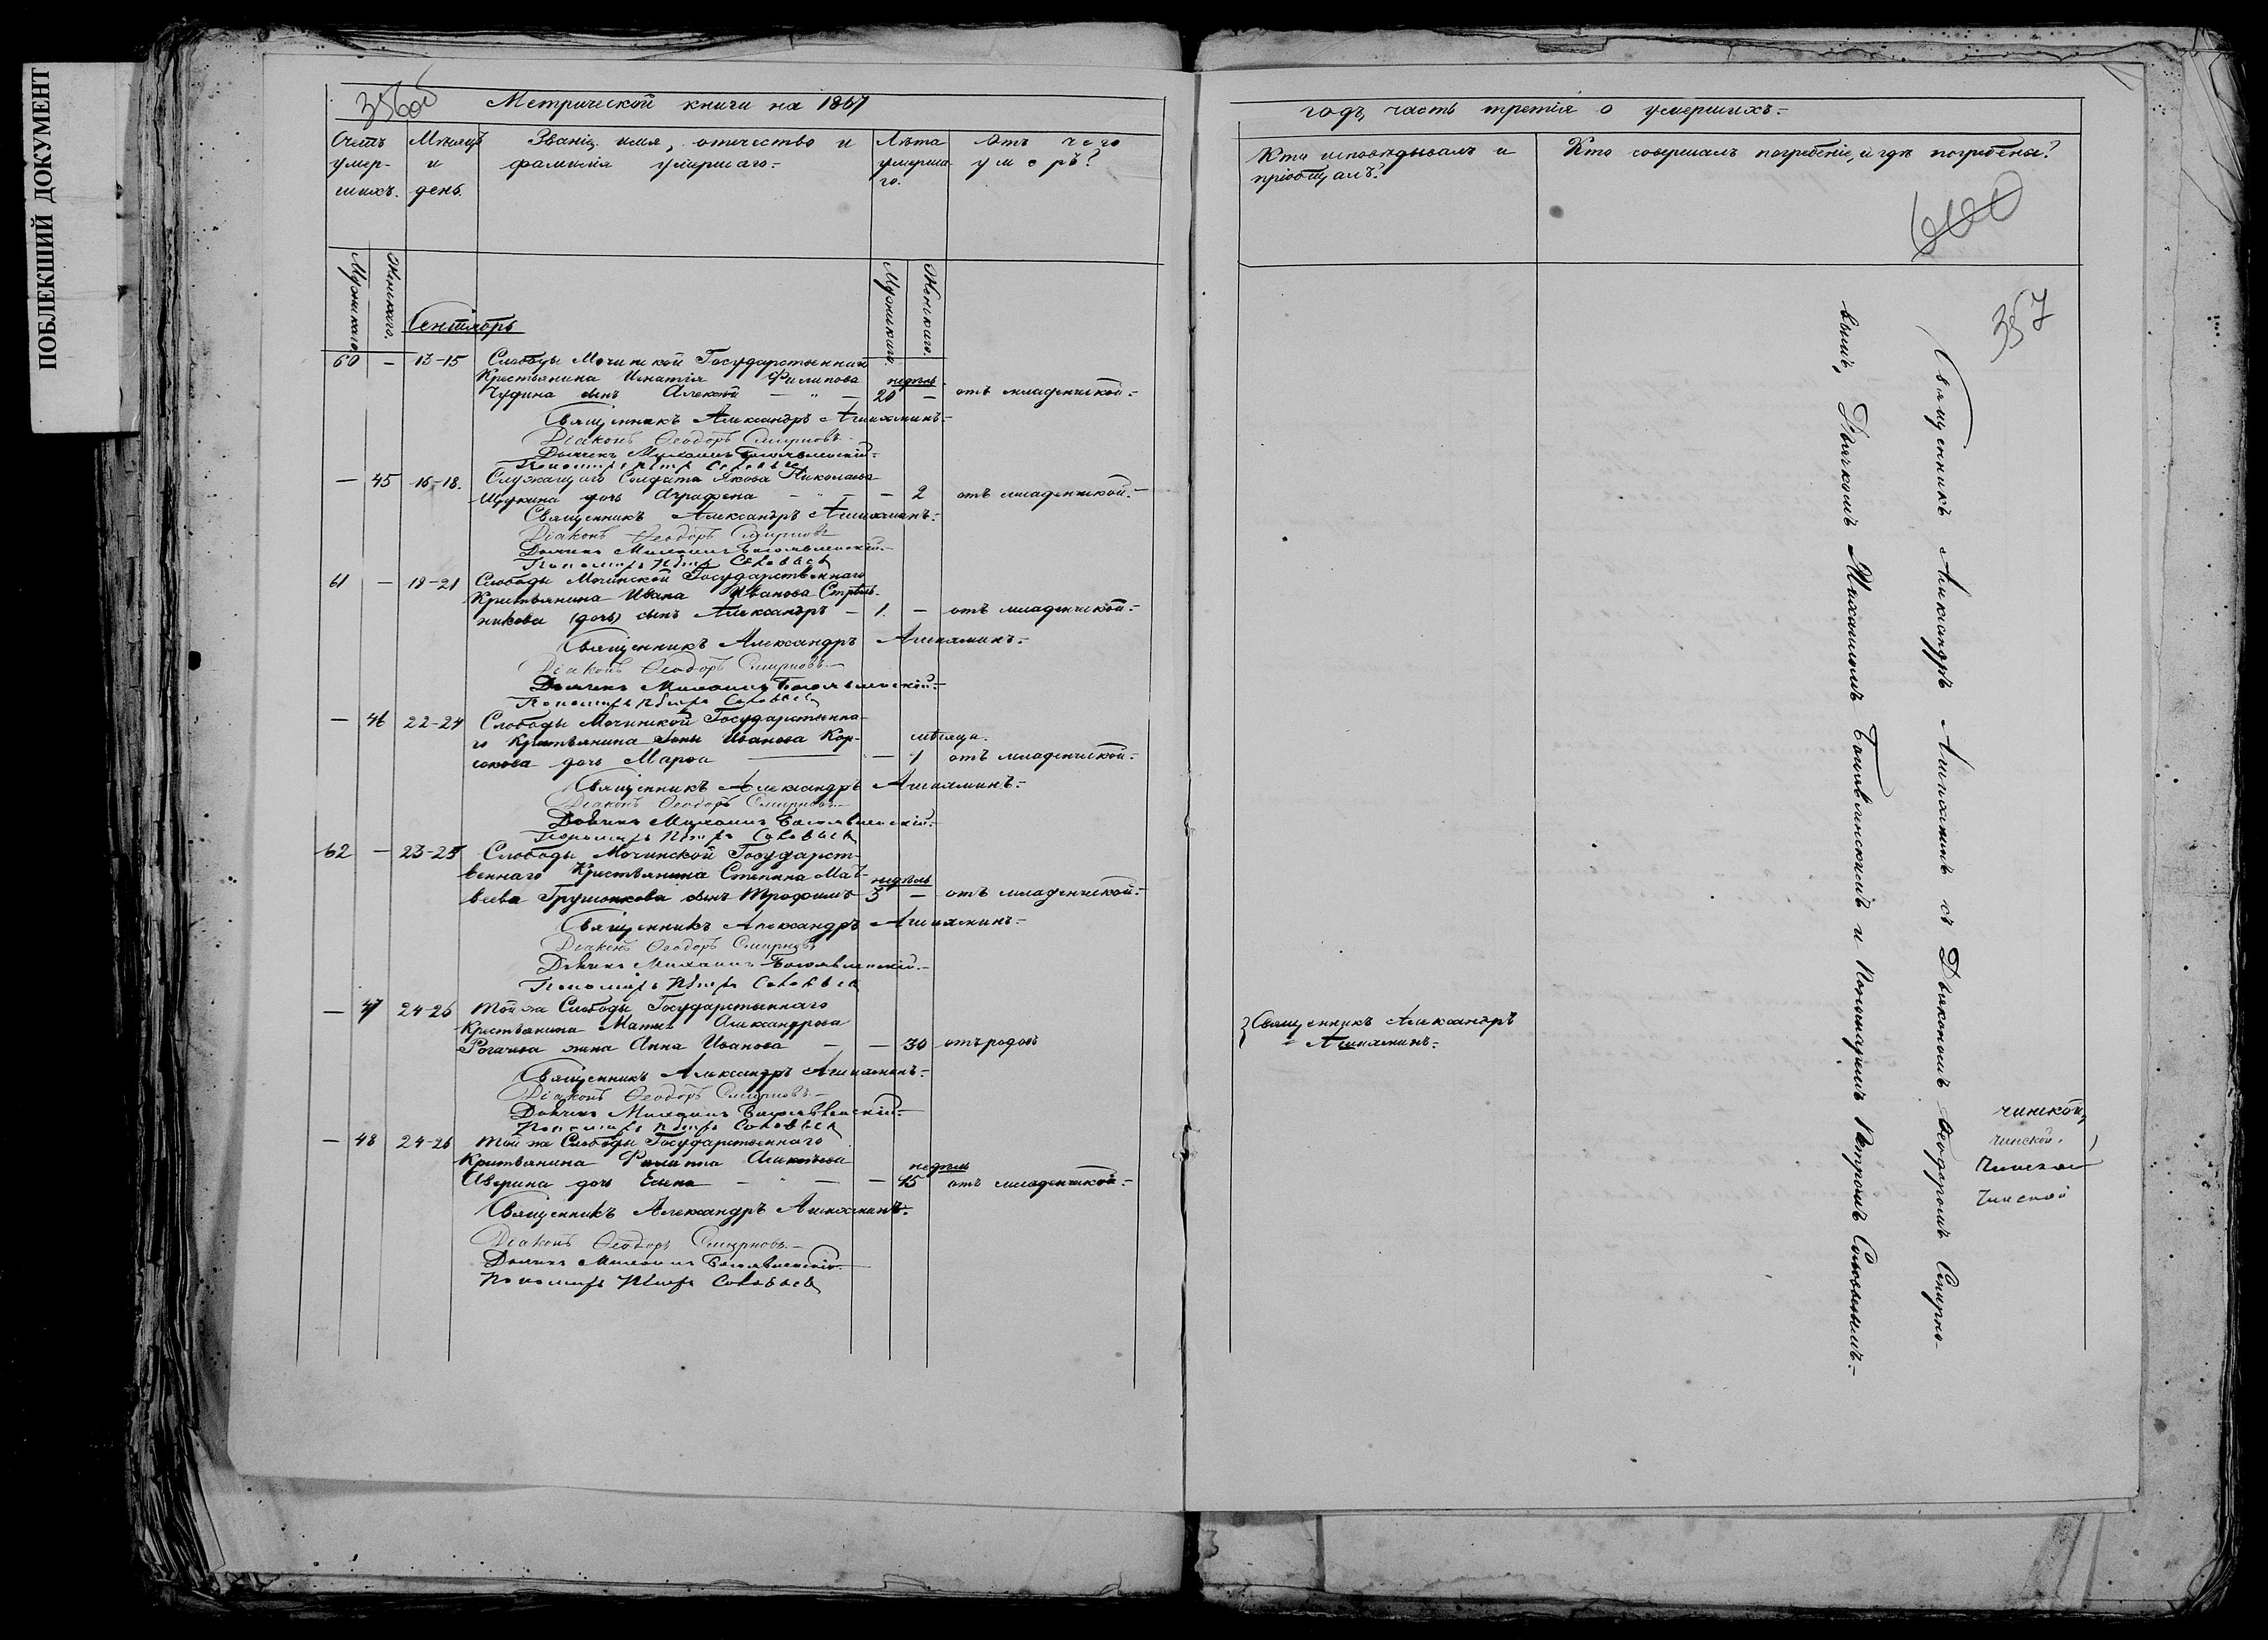 ПОБЛЕКШИЙ ДОКУМЕНТ
356об
Метрической книги на 1867
Счетъ умер-шихъ.
Мѣсяцъ и день.
Званіе, имя, отечество и фамилія умершаго.
Лѣта умерша-го.
Отъ чего умеръ?
Мужескаго.
Женскаго.
Мужескаго.
Женскаго.
Сентябрь
60 — 13-15 Слободы Мочинской Государственнаго
Крестьянина Игнатія Филипова недѣль
Чудина сынъ Алексѣй — 20 — отъ младенческой.
Священникъ Александръ
Діаконъ Ѳеодоръ Смирновъ.
Дьячекъ Михаилъ Богоявленскій.
Пономарь Петръ Соловьевъ
— 45 16-18. Служащаго Солдата Якова Николаева
Щукина дочь Аграфена — — 2 отъ младенческой.
Священникъ Александръ
Діаконъ Ѳеодоръ Смирновъ
Дьячекъ Михаилъ Богоявленскій.
Пономарь Петръ Соловьевъ
61 — 19-21 Слободы Мочинской Государственнаго
Крестьянина Ивана Иванова Стрѣль-
никова (дочь) сынъ Александръ — 1. — отъ младенческой.
Священникъ Александръ
Діаконъ Ѳеодоръ Смирновъ.
Дьячекъ Михаилъ Богоявленскій.
Пономарь Петръ Соловьевъ
— 46 22-24 Слободы Мочинской Государственна-
го Крестьянина Іоны Иванова Кор- мѣсяца.
сакова дочь Марѳа — 1 отъ младенческой.
Священникъ Александръ
Діаконъ Ѳеодоръ Смирновъ.
Дьячекъ Михаилъ Богоявленскій.
Пономарь Петръ Соловьевъ
62 — 23-25 Слободы Мочинской Государст-
веннаго Крестьянина Степана Мат- недѣль
веева сынъ Трофимъ 5 — отъ младенческой.
Священникъ Александръ
Діаконъ Ѳеодоръ Смирновъ
Дьячекъ Михаилъ Богоявленскій.
Пономарь Петръ Соловьевъ
— 47 24-26 Той же Слободы Государственнаго
Крестьянина Матвея Александрова
Рогачева жена Анна Иванова — — 30 отъ родовъ
Священникъ Александръ
Діаконъ Ѳеодоръ Смирновъ.
Дьячекъ Михаилъ Богоявленскій.
Пономарь Петръ Соловьевъ
— 48 24-26 Той же Слободы Государственнаго
Крестьянина Филиппа Алексѣева недѣль
Аверина дочь Елена — — 15 отъ младенческой.
Священникъ Александръ
Діаконъ Ѳеодоръ Смирновъ.
Дьячекъ Михаилъ Богоявленскій.
Пономарь Петръ Соловьевъ
годъ, часть третія о умершихъ.
Кто исповѣдывалъ и пріобщалъ?
Кто совершалъ погребеніе, и гдѣ погребены?
600
357
Священникъ Александръ
Священникъ Александръ съ Діакономъ Ѳеодоромъ Смирно-
вымъ, Дьячкомъ Михаиломъ Богоявленскимъ и Пономаремъ Петромъ Соловьевымъ.
чинской,
чинской,
чинской
чинской